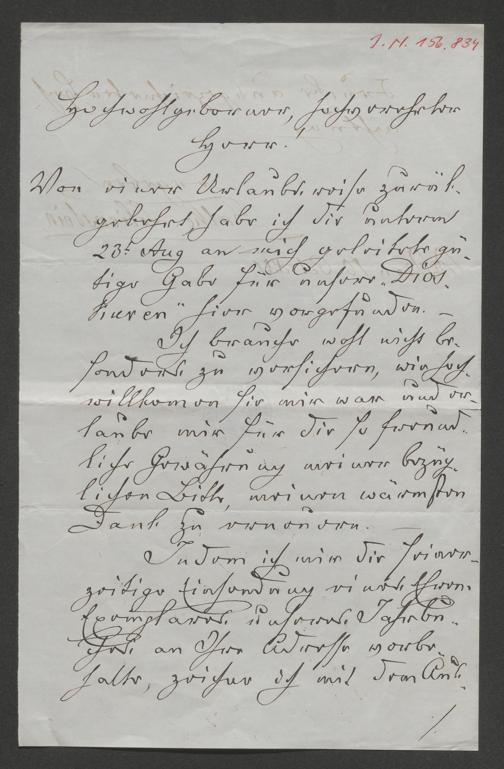 I. N. 156.834
Hochwohlgeborner, hochverehrter
Herr!
Von einer Urlaubsreise zurük-
gekehrt, habe ich die unterm
23t. Aug an mich geleitete gü-
tige Gabe für unsere „Dios-
kuren" hier vorgefunden. —
Ich brauche wohl nicht be-
sonders zu versichern, wie hoch-
willkomen sie mir war und er-
laube mir für die so freund-
liche Gewährung meiner bezüg-
lichen Bitte, meinen wärmsten
Dank zu erneuern. —
Indem ich mir die seiner-
zeitige Einsendung eines Ehren-
Exemplares unseres Jahrbu-
ches an Ihre Adresse vorbe-
halte, zeichne ich mit dem Aus-
./.